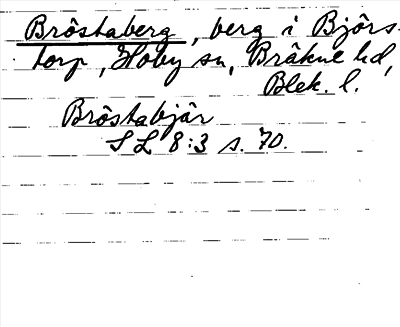 Bröstaberg, berg i Björs-
torp, Hoby sn, Bräkne hd,
Blek. l.
Bröstabjär
S L 8:3 s. 70.